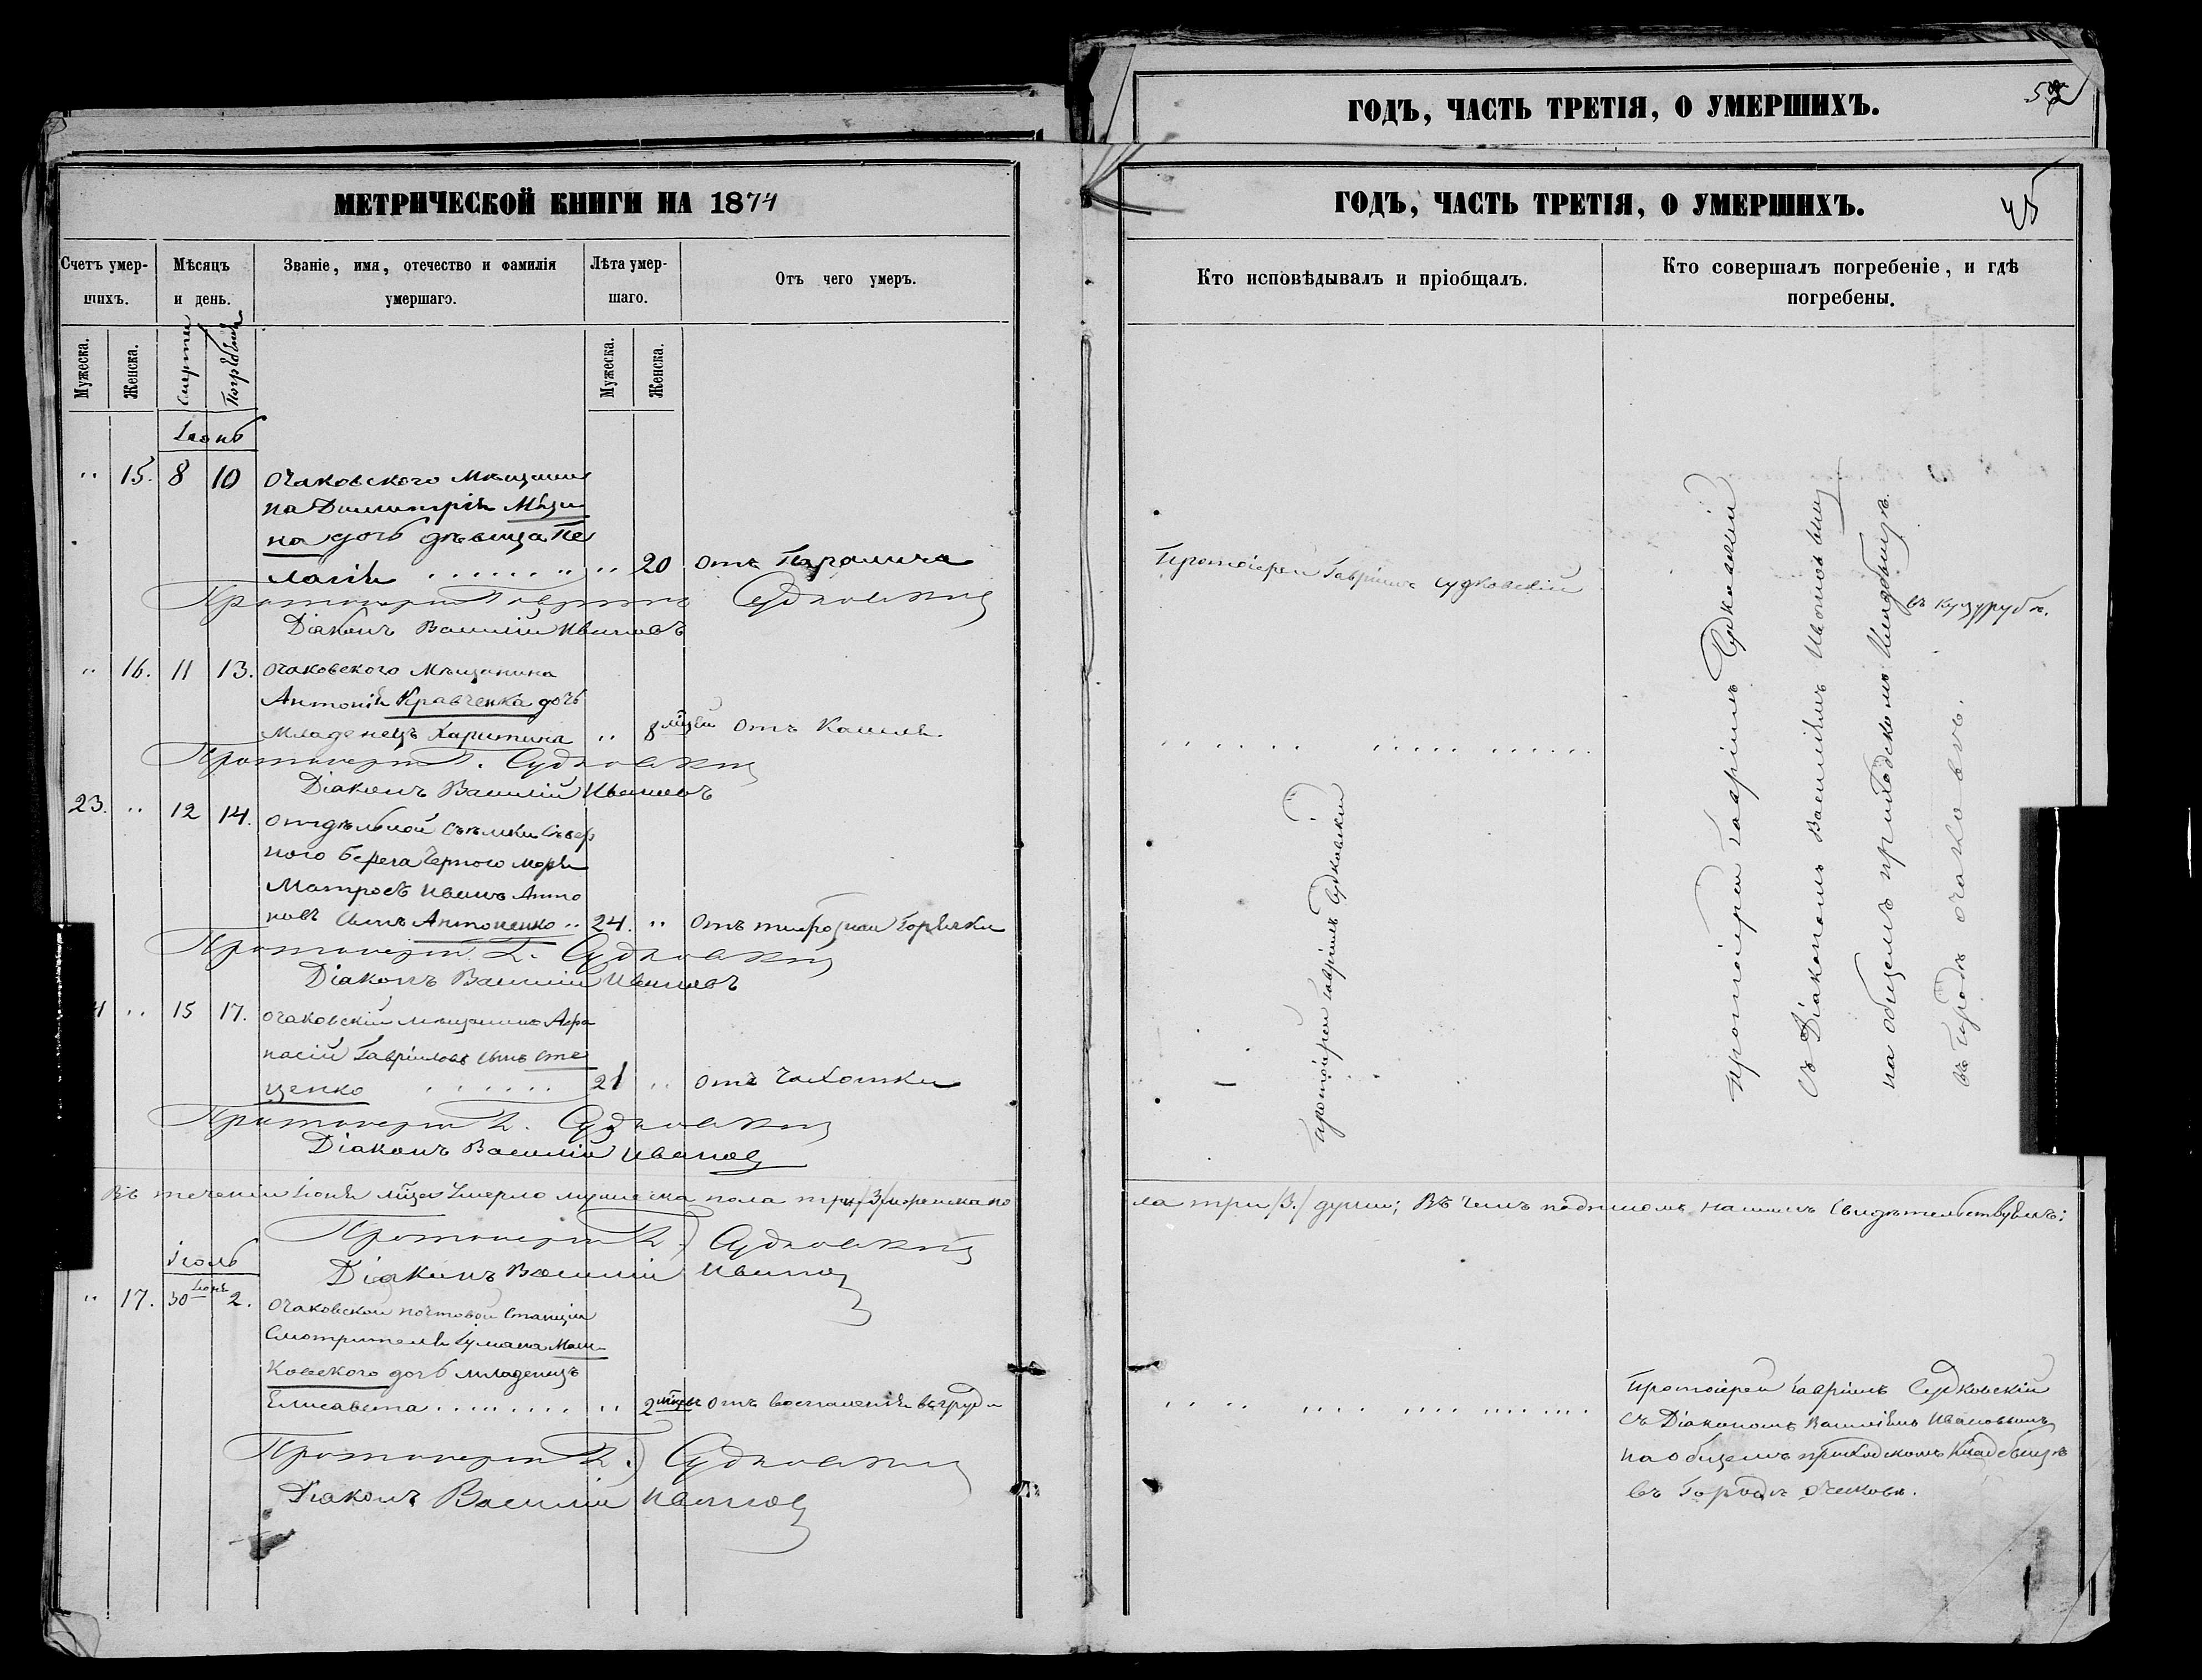 ГОДЪ, ЧАСТЬ ТРЕТІЯ, О УМЕРШИХЪ.
МЕТРИЧЕСКОЙ КНИГИ НА 1874
Счетъ умер-
шихъ.
Мѣсяцъ
и день.
Званіе, имя, отечество и фамилія
умершаго.
Лѣта умер-
шаго.
Отъ чего умеръ.
Мужеска.
Женска.
Смерти
Погребенія
Мужеска.
Женска.
Іюнь
15. 8 10 Очаковскаго Мѣщани
на Димитрія
на дочь дѣвица Пе
лагія 20 отъ Паралича
Протоіерей Гавріилъ Судковскій
Діаконъ Василій Ивановъ
16. 11 13. Очаковскаго Мѣщанина
Антонія Кравченка дочь
Младенецъ Харитина 8 мцевъ отъ Кашля.
Протоіерей Г. Судковскій
Діаконъ Василій Ивановъ
23. 12 14. Отдѣльной съемки Сѣвер
ного берега Черного моря
Матросъ Иванъ Анто
новъ сынъ Антоненко 24. отъ тифозной Горячки
Протоіерей Г. Судковскій
Діаконъ Василій Ивановъ
15 17. Очаковскій мѣщанинъ Афа
насій Гавріиловъ сынъ Сте
ценко 21 отъ Чахотки
Протоіерей Г. Судковскій
Діаконъ Василій Ивановъ
Въ теченіи Іюня мѣца Умерло мужеска пола три /3/ женска по
Протоіерей Г. Судковскій
Діаконъ Василій Ивановъ
Іюль
17. 30 Іюня 2. Очаковской почтовой Станціи
Смотрителя
Ковского дочь младенецъ
Елисавета 2 мцевъ отъ воспаленія въ груди
Протоіерей Г. Судковскій
Діаконъ Василій Ивановъ
ГОДЪ, ЧАСТЬ ТРЕТІЯ, О УМЕРШИХЪ.
45
Кто исповѣдывалъ и пріобщалъ.
Кто совершалъ погребеніе, и гдѣ
погребены.
Протоіерей Гавріилъ Судковскій
Протоіерей Гавріилъ Судковскій
Протоіерей Гавріилъ Судковскій
съ Діакономъ Василіемъ Ивановымъ
на общемъ приходскомъ Кладбищѣ
въ Городѣ Очаковѣ.
ла три /3./ души; Въ чемъ подписомъ нашимъ свидѣтельствуемъ:
Протоіерей Гавріилъ Судковскій
съ Діакономъ Василіемъ Ивановымъ
на общемъ приходскомъ Кладбищѣ
въ Городѣ Очаковѣ.